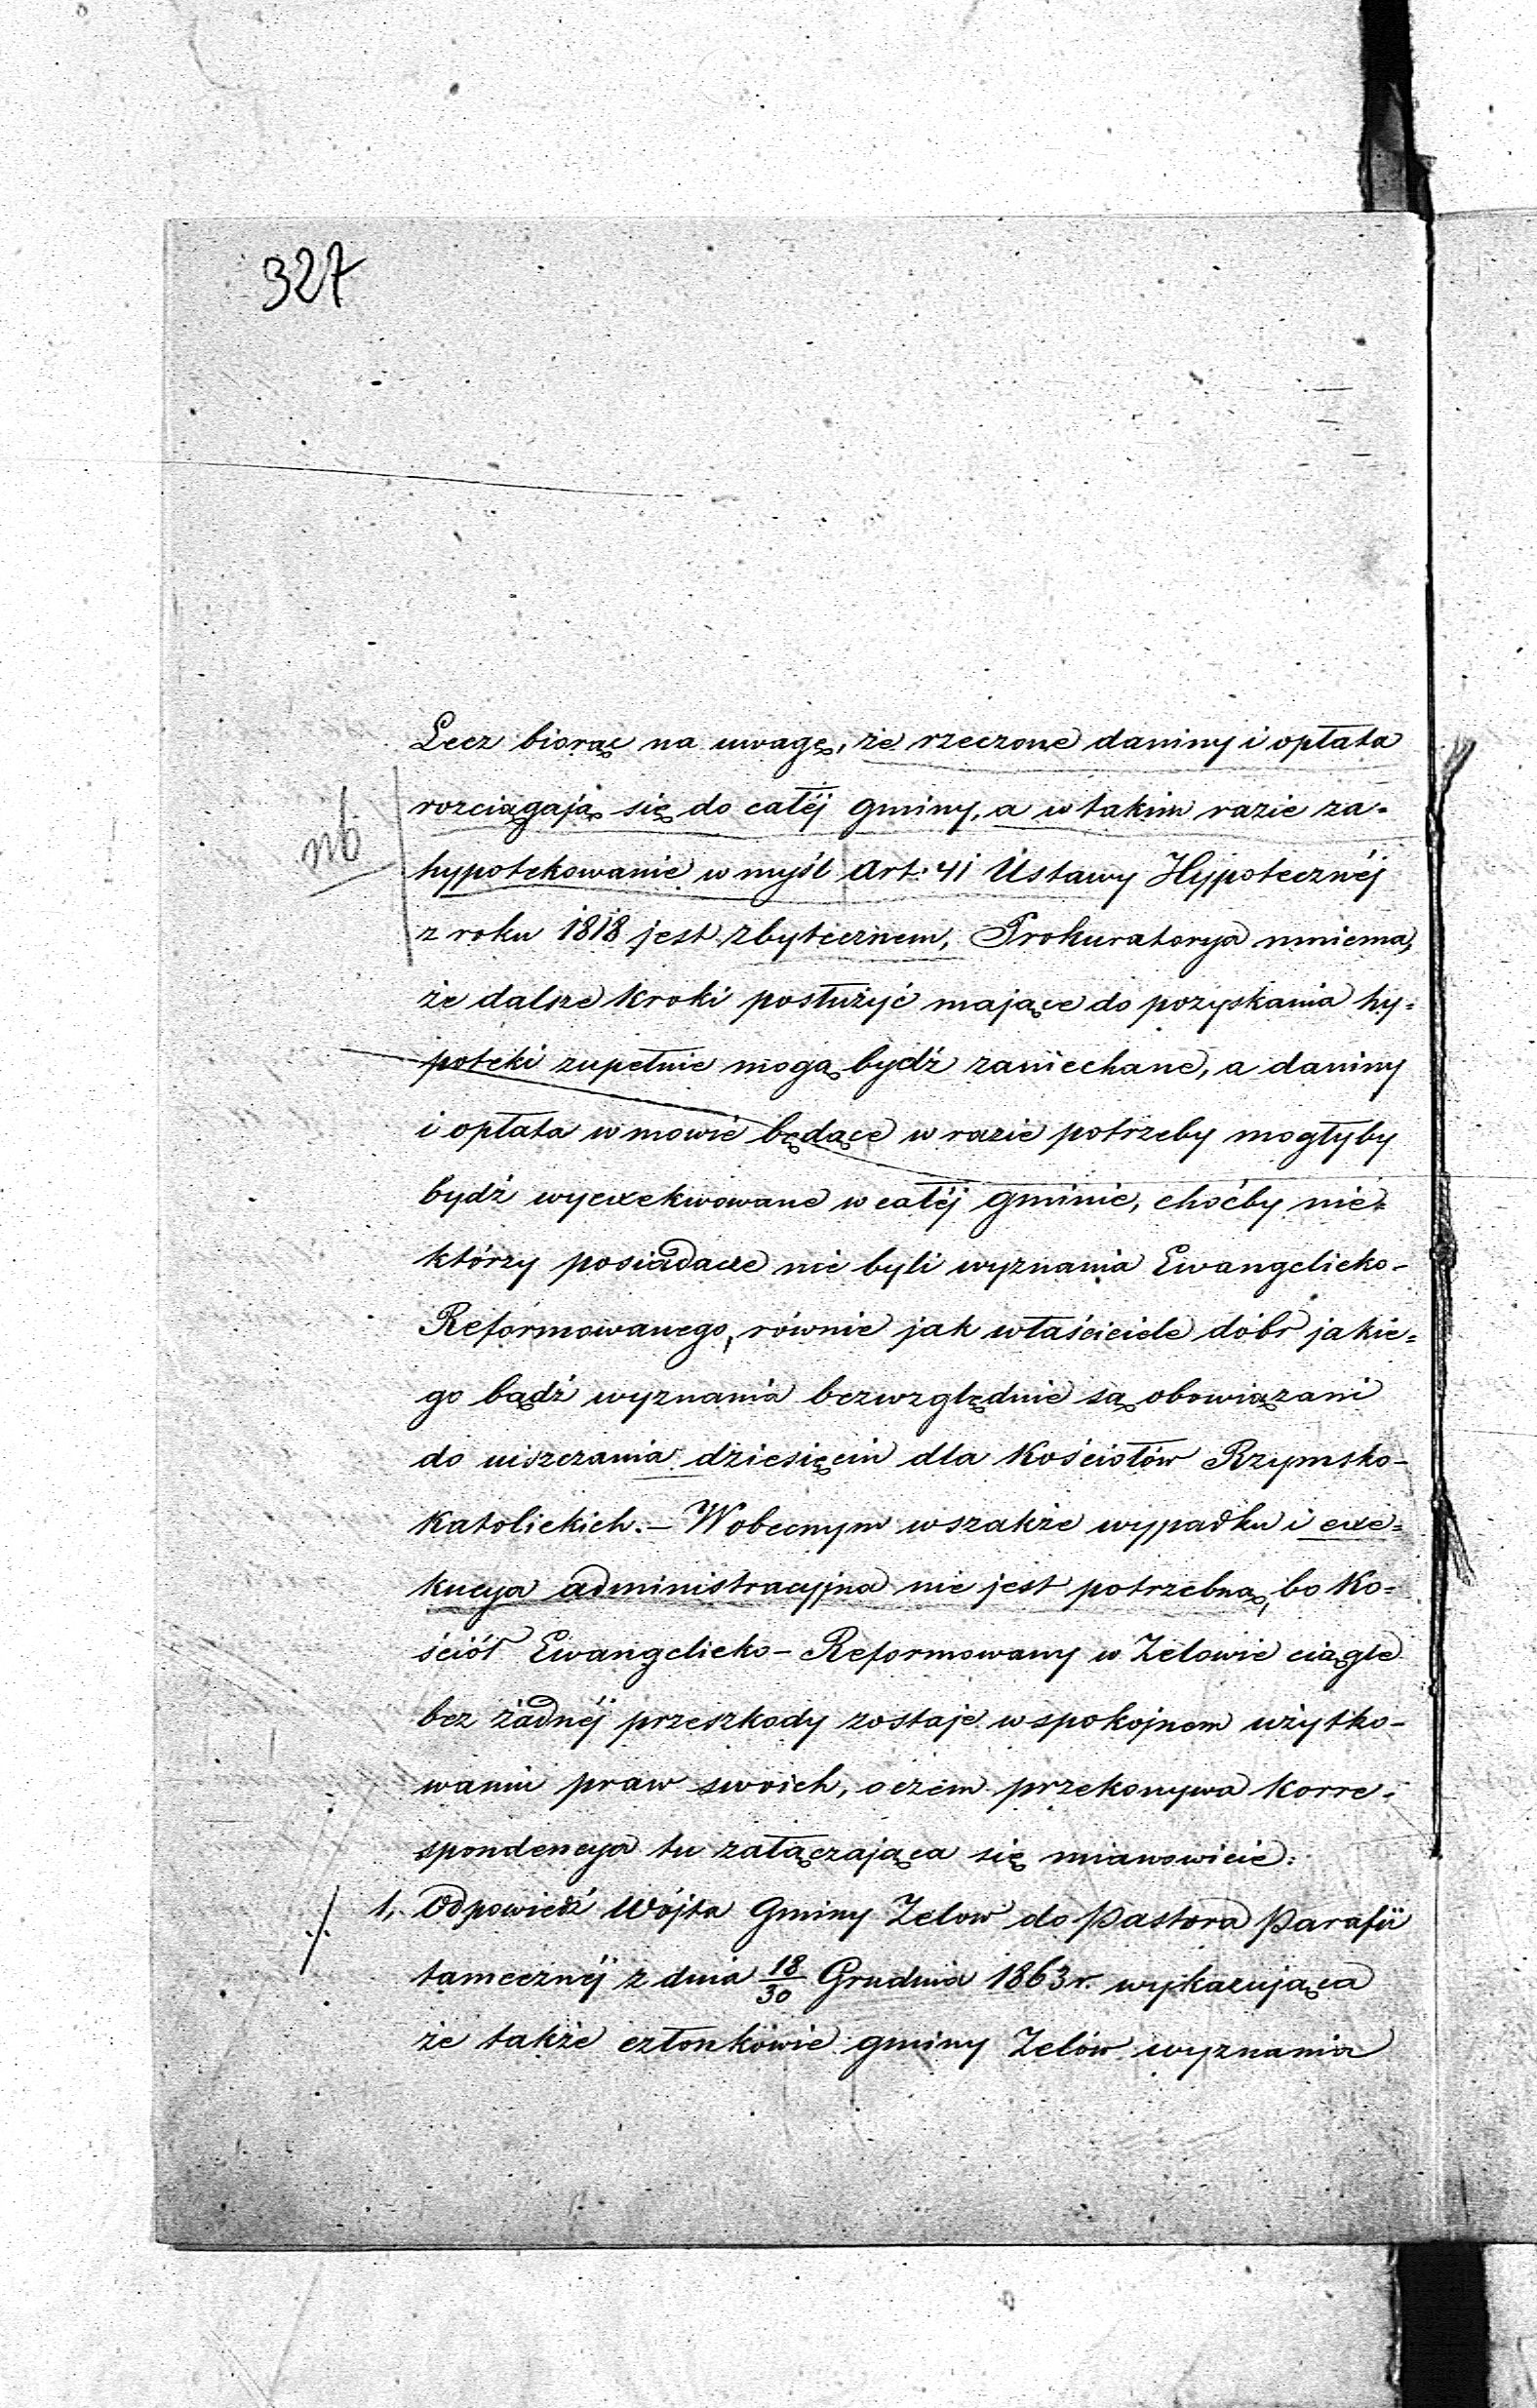 327
Lecz biorąc na uwagę, że rzeczone daniny i opłata
rozciągają się do całéj gminy, a w takim razie za=
nb
hypotekowanie w myśl Art: 41 Ustawy Hypotecznéj
z roku 1818 jest zbytecznem, Prokuratorya mniema,
że dalsze kroki posłużyć mające do pozyskania hy=
poteki zupełnie mogą bydź zaniechane, a daniny
i opłata w mowie będące w razie potrzeby mogłyby
bydź wyexekwowane w całéj gminie, choćby nie=
którzy posiadacze nie byli wyznania Ewangelicko-
Reformowanego, równie jak właściciele dóbr jakie=
go bądź wyznania bezwzględnie są obowiązani
do uiszczania dziesięcin dla Kościołów Rzymsko-
Katolickich.– W obecnym wszakże wypadku i exe=
kucya administracyjna nie jest potrzebną, bo Ko=
ściół Ewangelicko-Reformowany w Zelowie ciągle
bez żadnéj przeszkody zostaje w spokojnem użytko-
waniu praw swoich, o czem przekonywa korre=
spondencya tu załączająca się mianowicie:
./. 1, Odpowiedź Wójta Gminy Zelow do Pastora Parafii
tamecznéj z dnia 18/30 Grudnia 1863 r. wykazująca
że także członkowie gminy Zelów wyznania